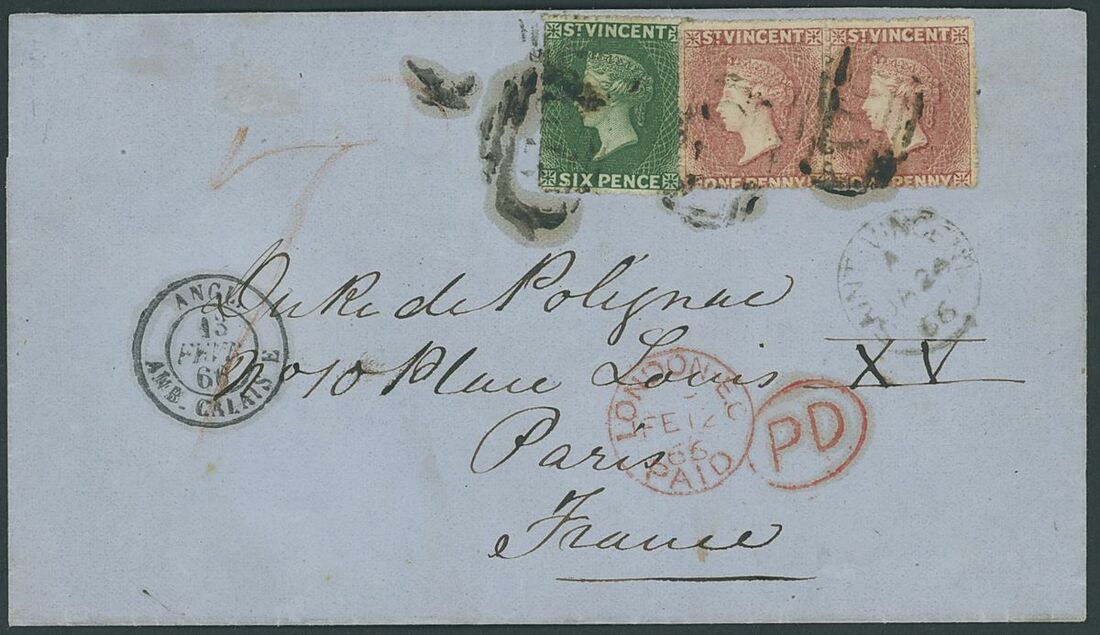 ST VINCENT ST VINCENT ST VINCENT
SIX PENCE ONE PENNY PENNY
7
SAINT VINCENT
A
JA 24
66
Duke de Polignac
No 10 Place Louis XV
Paris
France
ANGL.
13
FEVR
66
AMB. CALAIS E
LONDON EC
FE 12
66
PAID
PD